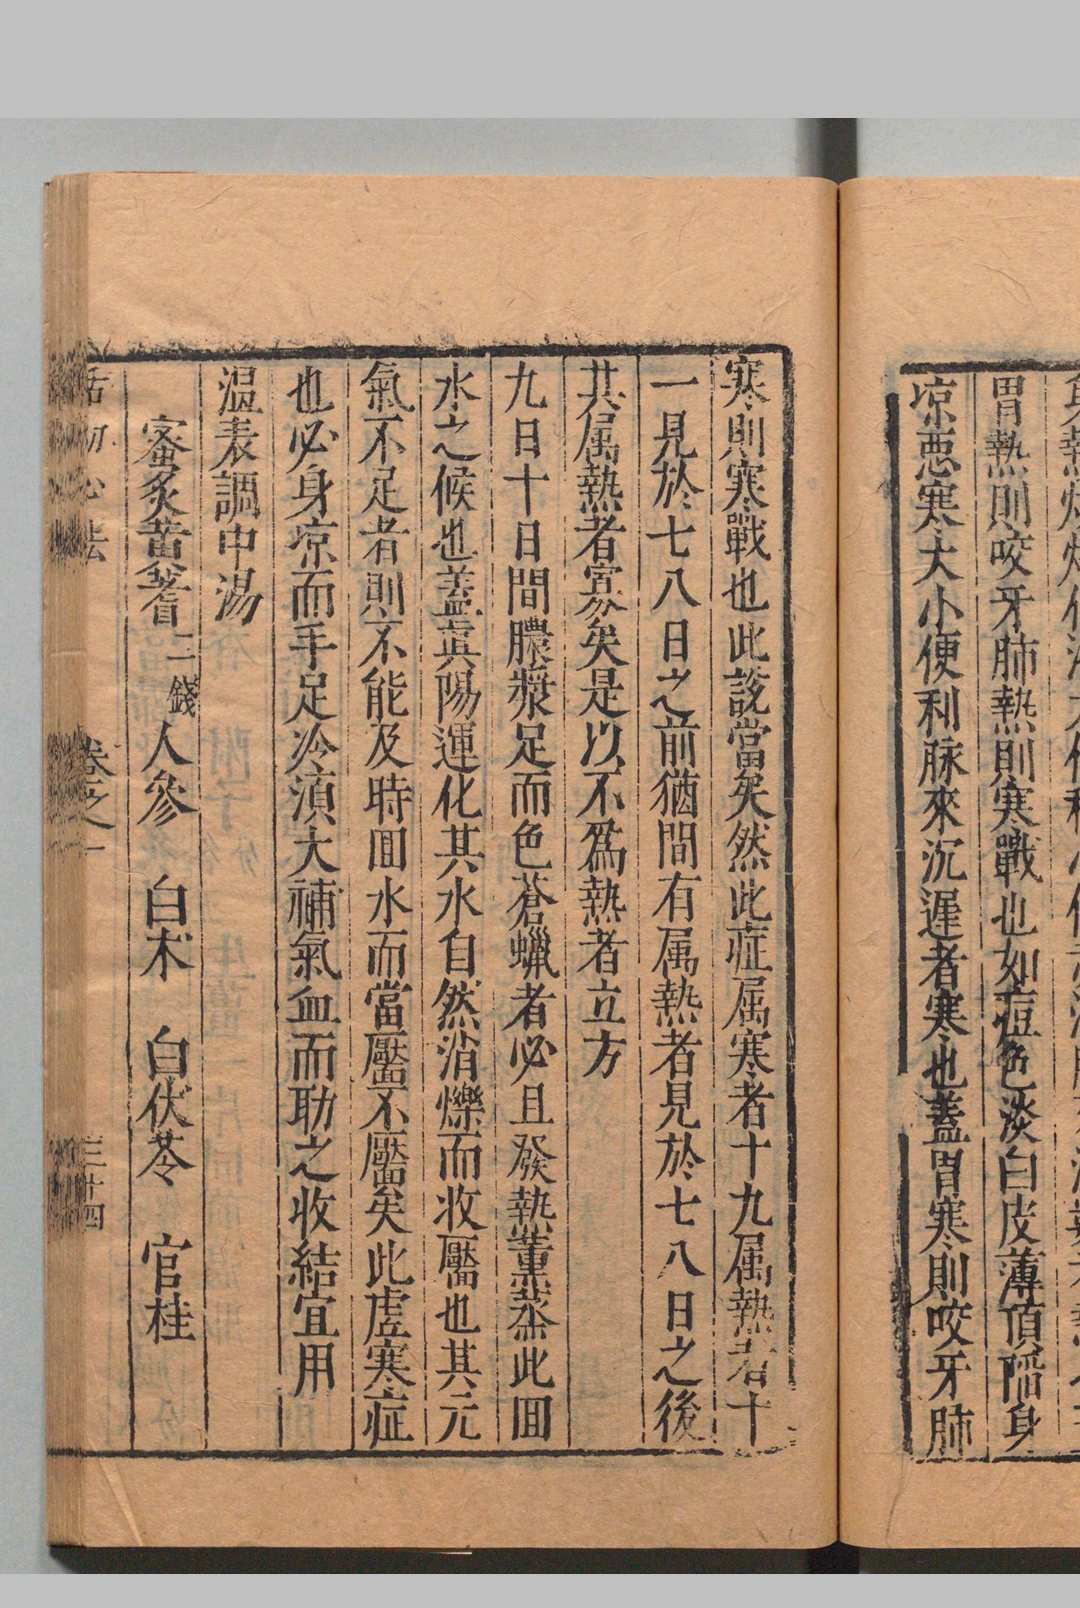 胃熱則咬牙肺熱則寒戰也如痘色淡白皮薄頂陷身
凉惡寒大小便利脉來沉遲者寒也蓋胃寒則咬牙肺
寒則寒戰也此說當矣然此症属寒者十九属熱者十
一見於七八日之前猶間有属熱者見於七八日之後
其属熱者寡矣是以不爲熱者立方
九日十日間膿漿足而色蒼蠟者必且發熱薰蒸此囬
水之候也蓋眞陽運化其水自然消爍而收靨也其元
氣不足者則不能及時囬水而當靨不靨矣此虗寒症
也必身凉而手足冷湏大補氣血而助之收結宜用
温表調中湯
蜜炙黄蓍二錢 人參 白术 白茯苓 官桂
活幼心法 卷之一 三十四